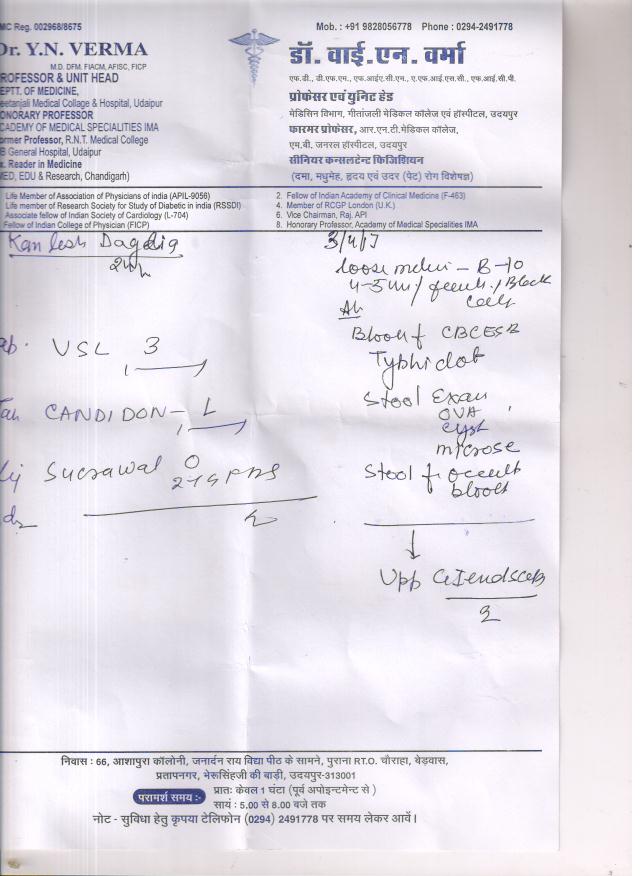 MC Reg. 002968/8675
Mob. : +91 9828056778 Phone : 0294-2491778
Dr. Y.N. VERMA
M.D. DFM. FIACM, AFISC, FICP
ROFESSOR & UNIT HEAD
EPTT. OF MEDICINE,
eetanjali Medical Collage & Hospital, Udaipur
ONORARY PROFESSOR
CADEMY OF MEDICAL SPECIALITIES IMA
ormer Professor, R.N.T. Medical College
B General Hospital, Udaipur
. Reader in Medicine
MED, EDU & Research, Chandigarh)
डॉ. वाई.एन. वर्मा
एफ.डी., डी.एफ.एम., एफ.आईए.सी.एम., ए.एफ.आई.एस.सी., एफ.आई.सी.पी.
प्रोफेसर एवं युनिट हेड
मेडिसिन विभाग, गीतांजली मेडिकल कॉलेज एवं हॉस्पीटल, उदयपुर
फारमर प्रोफेसर, आर.एन.टी.मेडिकल कॉलेज,
एम.बी. जनरल हॉस्पीटल, उदयपुर
सीनियर कन्सलटेन्ट फिजिशियन
(दमा, मधुमेह, हृदय एवं उदर (पेट) रोग विशेषज्ञ)
Life Member of Association of Physicians of india (APIL-9056)
Life member of Research Society for Study of Diabetic in india (RSSDI)
Associate fellow of Indian Society of Cardiology (L-704)
Fellow of Indian College of Physician (FICP)
2. Fellow of Indian Academy of Clinical Medicine (F-463)
4. Member of RCGP London (U.K.)
6. Vice Chairman, Raj. API
8. Honorary Professor, Academy of Medical Specialities IMA
Kamlesh
loose
VSL 3
CANDIDON - L
Sucrawal O
CBC ESR
Typhidot
Stool Exam
OVA
cyst
Stool f occult
blood
Upp GI
2
निवास : 66, आशापुरा कॉलोनी, जनार्दन राय विद्या पीठ के सामने, पुराना R.T.O. चौराहा, बेड़वास,
प्रतापनगर, भेरूसिंहजी की बाड़ी, उदयपुर-313001
परामर्श समय :-
प्रातः केवल 1 घंटा (पूर्व अपोइन्टमेन्ट से)
सायं : 5.00 से 8.00 बजे तक
नोट - सुविधा हेतु कृपया टेलिफोन (0294) 2491778 पर समय लेकर आवें।